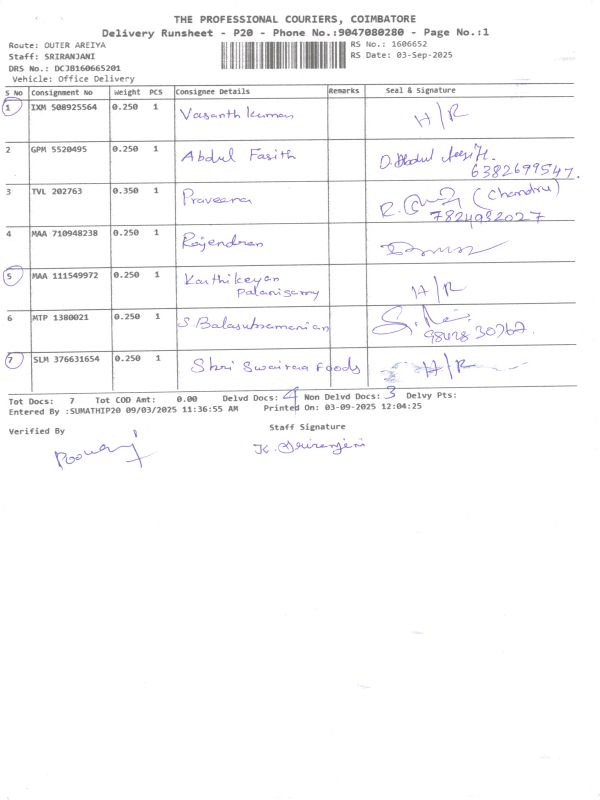 THE PROFESSIONAL COURIERS, COIMBATORE
Delivery Runsheet - P20 - Phone No.:9047080280 - Page No.:1
Route: OUTER AREIYA RS No.: 1606652
Staff: SRIRANJANI RS Date: 03-Sep-2025
DRS No.: DCJB160665201
Vehicle: Office Delivery
S No Consignment No Weight PCS Consignee Details Remarks Seal & Signature
1 IXM 508925564 0.250 1 Vasanth Kumar H/R
2 GPM 5520495 0.250 1 Abdul Fasith D. Abdul
6382699547.
3 TVL 202763 0.350 1 Praveena R. (Chandru)
7824982027
4 MAA 710948238 0.250 1 Rajendran
5 MAA 111549972 0.250 1 Karthikeyan H/R
Palanisamy
6 MTP 1380021 0.250 1 S. Balasubramanian
98428 30767.
7 SLM 376631654 0.250 1 Shri Swairaa Foods H/R
Tot Docs: 7 Tot COD Amt: 0.00 Delvd Docs: 4 Non Delvd Docs: 3 Delvy Pts:
Entered By :SUMATHIP20 09/03/2025 11:36:55 AM Printed On: 03-09-2025 12:04:25
Verified By Staff Signature
K. Sriranjani